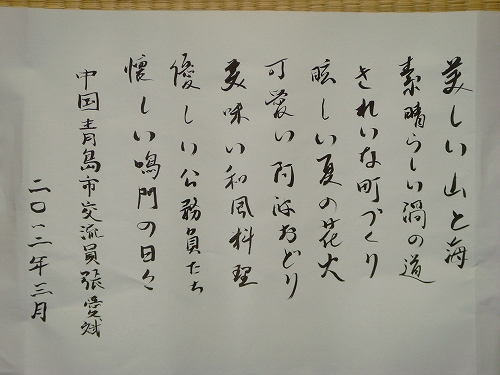 美しい山と海
素晴らしい渦の道
きれいな町づくり
眩しい夏の花火
可愛い阿波おどり
美味い和風料理
優しい公務員たち
懐しい鳴門の日々
中国青島市交流員張愛斌
二〇一二年三月